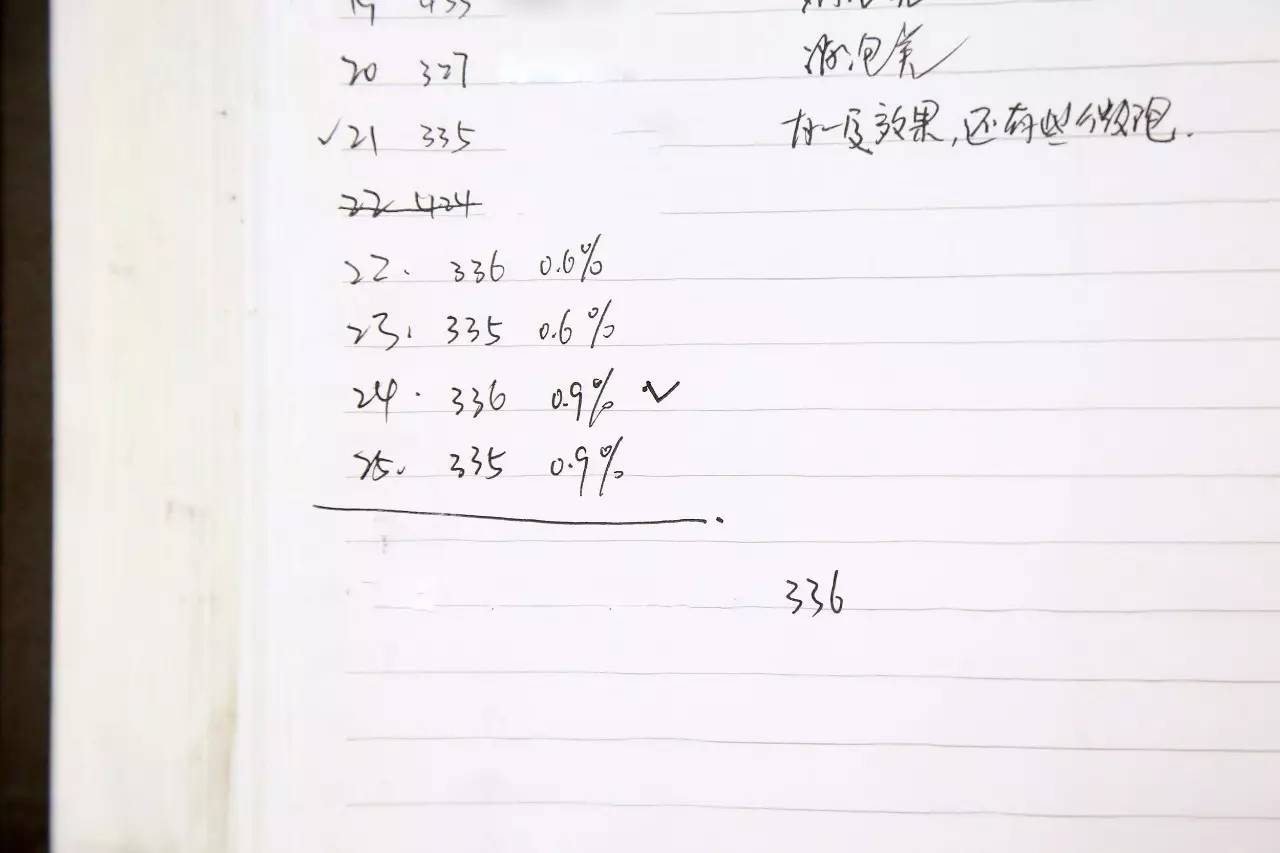 19 433
20 327
消泡差
√21 335
有一度效果,还有些微泡.
22 424
22. 336 0.6%
23. 335 0.6%
24. 336 0.9% √
25. 335 0.9%
336